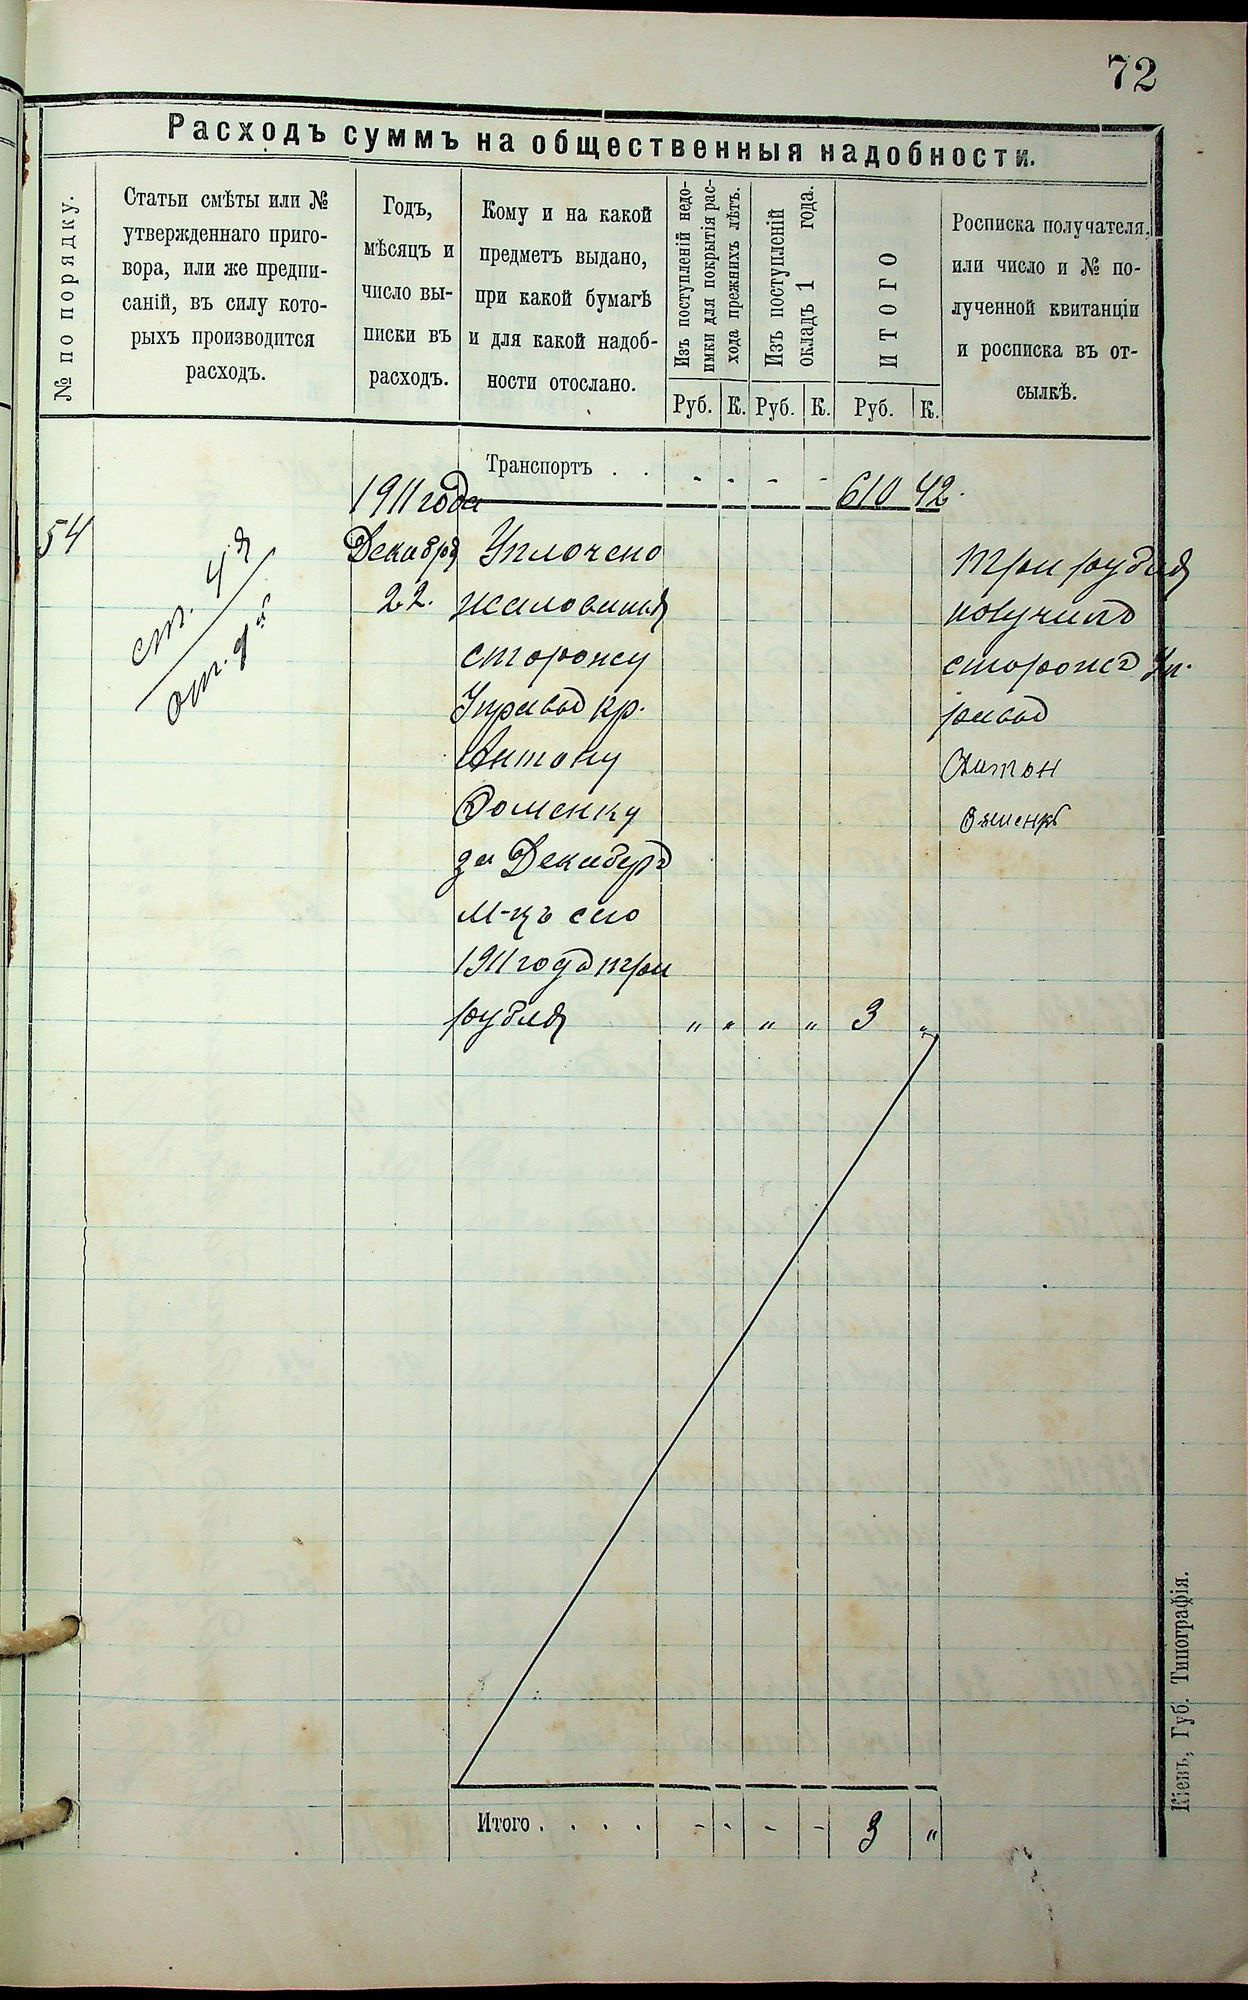 72
Расходъ суммъ на общественныя надобности.
№ по порядку.
Статьи смѣты или №
утвержденнаго приго-
вора, или же предпи-
саній, въ силу кото-
рыхъ производится
расходъ.
Годъ,
мѣсяцъ и
число вы-
писки въ
расходъ.
Кому и на какой
предметъ выдано,
при какой бумагѣ
и для какой надоб-
ности отослано.
Изъ поступленій недо-
имки для покрытія рас-
хода прежнихъ лѣтъ.
Изъ поступленій
окладъ 1 года.
ИТОГО
Росписка получателя,
или число и № по-
лученной квитанціи
и росписка въ от-
сылкѣ.
Руб. К. Руб. К. Руб. К.
Транспортъ . . - - - - 610 42.
1911 года
54
ст. 4я
от. 9й
Декабря
22.
Уплочено
жалованья
сторожу
Управ кр.
Антону
Доменку
за Декабрь
м-цъ сего
1911 года три
рубля „ „ „ „ 3 „
три рубля
получилъ
сторожъ Уп-
рав
Антон
Итого . . . . - - - - 3 „
Кіевъ, Губ. Типографія.